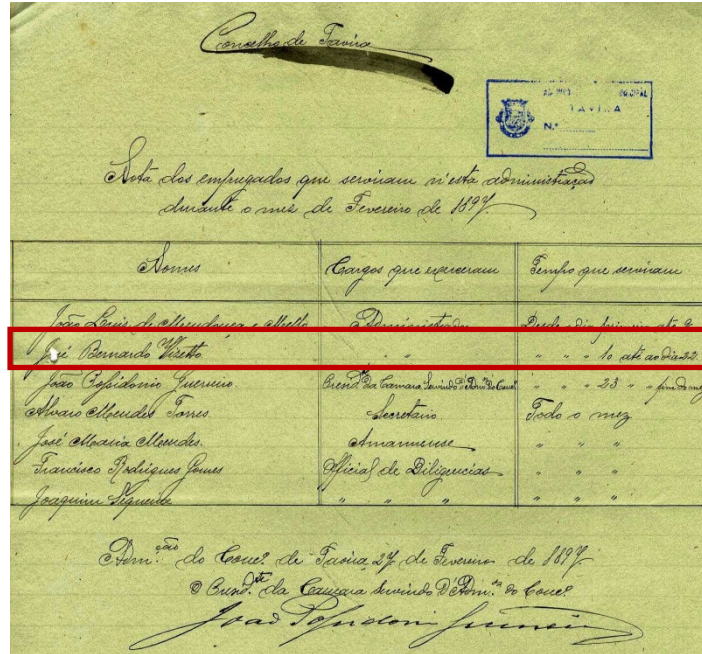 Concelho de Tavira
TAVIRA
N.º
Nota dos empregados que serviram n'esta administração
durante o mez de Fevereiro de 1897
Nomes Cargos que exerceram Tempo que serviram
João Luis de Mendonça e Mello Administrador Desde o dia primeiro até 9
José Bernardo Vizetto " " " " " 10 até ao dia 22
João Possidonio Guerreiro Presid.te da Camara Servindo d'Adm.or do Conc.º " " " 23 " " fim do mez
Alvaro Mendes Torres Secretario Todo o mez
José Maria Mendes Amanuense " " "
Francisco Rodrigues Gomes Official de Diligencias " " "
Joaquim Sequeira " " " " " "
Adm.ção do Conc.º de Tavira, 27 de Fevereiro de 1897
O Presid.te da Camara servindo d'Adm.or do Conc.º
João Possidonio Guerreiro